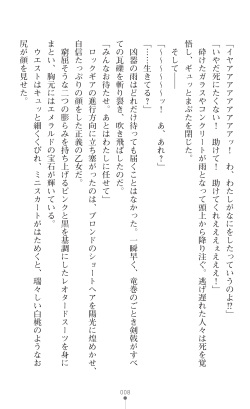 「イヤアアアアアアアアアッ！　わ、わたしがなにをしたっていうのよ!?」
「いやだ死にたくない！　助けて！　助けてくれえええぇええ！」
砕けたガラスやコンクリートが雨となって頭上から降り注ぐ。逃げ遅れた人々は死を覚
悟し、ギュッとまぶたを閉じた。
そして――
「～～～～～ッ！　あ、あれ？」
「……生きてる？」
凶器の雨はどれだけ待っても届くことはなかった。一瞬早く、竜巻のごとき剣戟がすべ
ての瓦礫を斬り裂き、吹き飛ばしたのだ。
「みんなお待たせ。あとはわたしに任せて」
ロックギアの進行方向に立ち塞がったのは、ブロンドのショートヘアを陽光に煌めかせ、
自信たっぷりの顔をした正義の乙女だ。
窮屈そうな二つの膨らみを持ち上げるピンクと黒を基調にしたレオタードスーツを身に
まとい、胸元にはエメラルドの宝石が輝いている。
ウエストはキュッと細くくびれ、ミニスカートがはためくと、瑞々しい白桃のようなお
尻が顔を見せた。
008